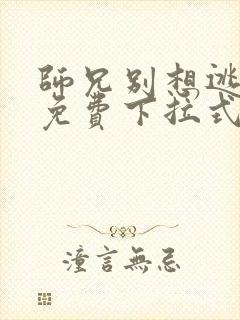 師兄別想逃
免費下拉式
潼言無忌